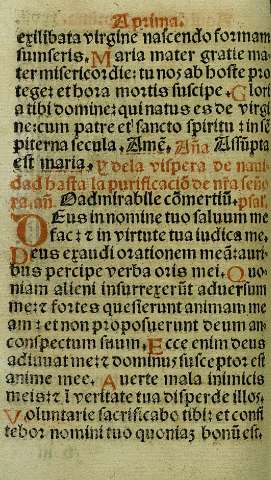 A prima.
exilibata virgine nascendo formam
sumseris. Maria mater gratie ma-
ter misericordie: tu nos ab hoste pro
tege: et hora mortis suscipe. Glori
a tibi domine: qui natus es de virgi
ne: cum patre et sancto spiritu: in se
piterna secula. Amē. Aña Assūpta
est maria. Y dela vispera de naui-
dad hasta la purificaciō de nr̄a seño
ra. añ. O admirabile cōmertiū. psal.
Deus in nomine tuo saluum me
fac: ⁊ in virtute tua iudica me.
Deus exaudi orationem meā: auri-
bus percipe verba oris mei. Quo-
niam alieni insurrexerūt aduersum
me: ⁊ fortes quesierunt animam me
am: et non proposuerunt deum an-
conspectum suum. Ecce enim deus
adiuuat me: ⁊ dominus susceptor est
anime mee. Auerte mala inimicis
meis: ⁊ ī veritate tua disperde illos.
Voluntarie sacrificabo tibi: et confi
tebor nomini tuo quoniaȝ bonū est.